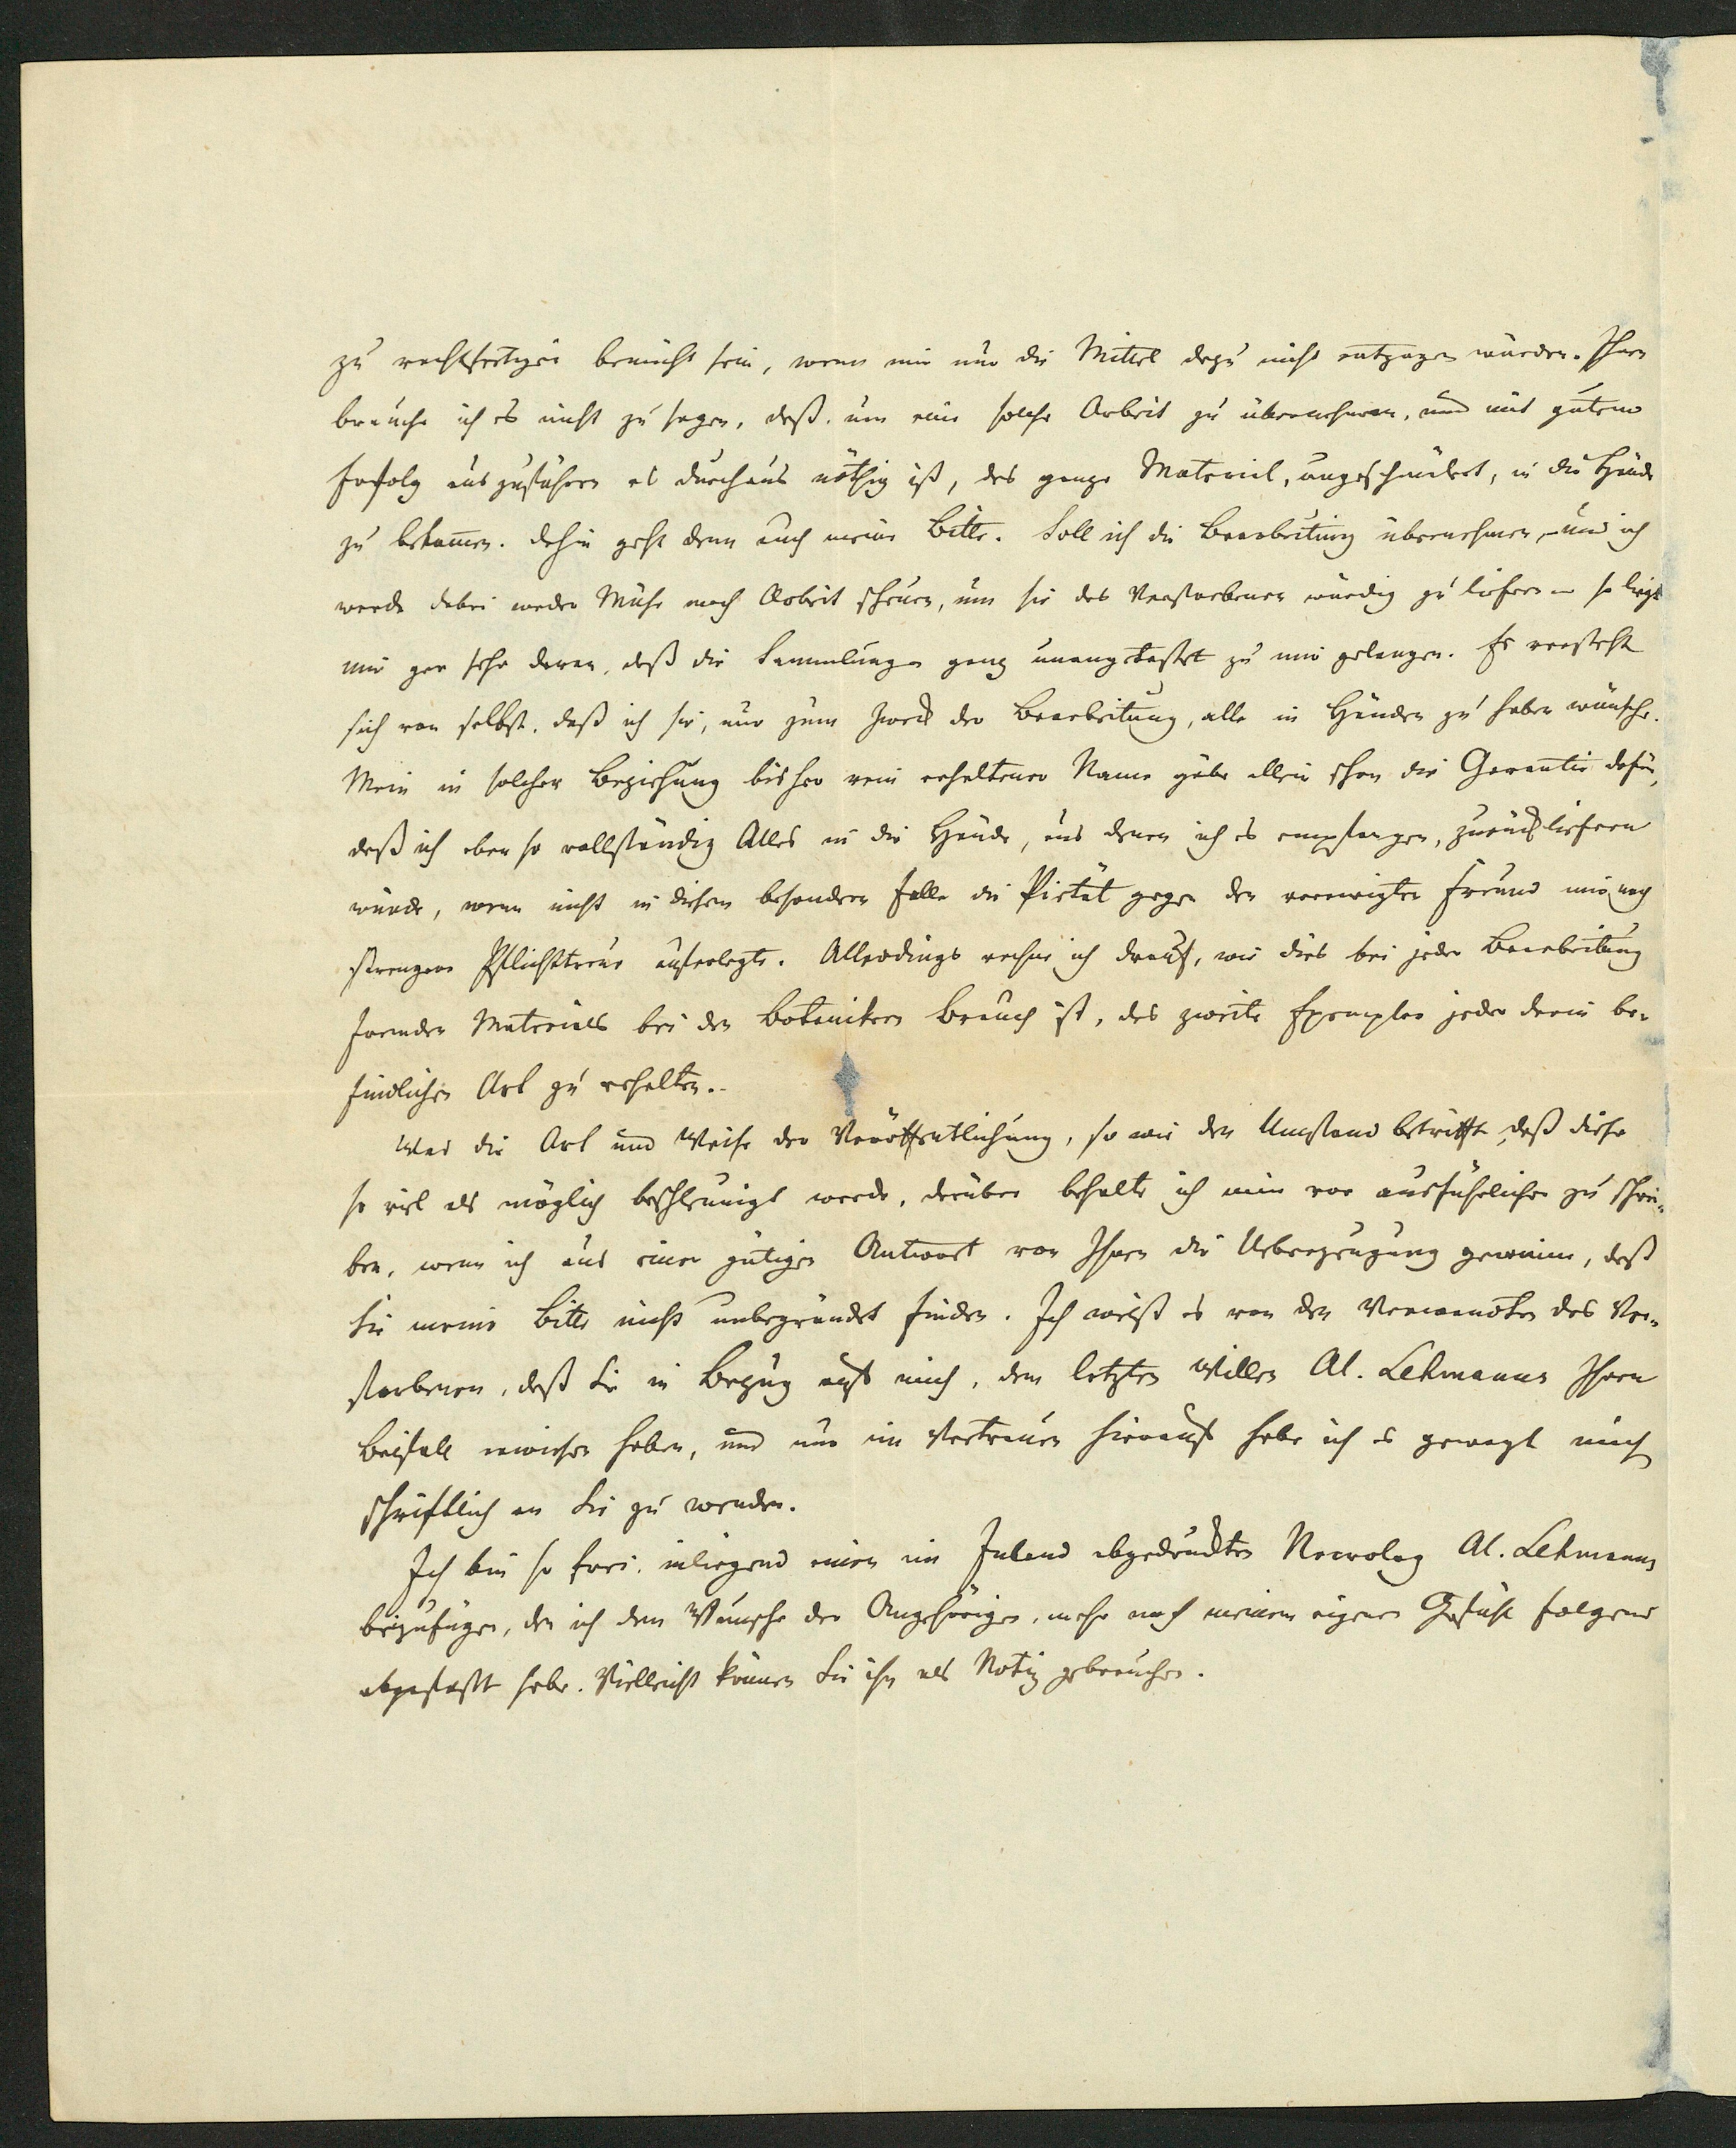 zu rechtfertigen bemüht sein, wenn mir nur die Mittel dazu nicht entzogen würden. Ihnen
brauche ich es nicht zu sagen, daß, um eine solche Arbeit zu übernehmen, und mit gutem
Erfolg auszuführen es durchaus nöthig ist, das ganze Material, ungeschmälert, in die Hände
zu bekommen. Dahin geht denn auch meine Bitte. Soll ich die Bearbeitung übernehmen, – und ich
werde dabei weder Mühe noch Arbeit scheuen, um sie des Verstorbenen würdig zu liefern – so liegt
mir gar sehr daran, daß die Sammlungen ganz unangetastet zu mir gelangen. Es versteht
sich von selbst, daß ich sie, nur zum Zweck der Bearbeitung, alle in Händen zu haben wünsche.
Mein in solcher Beziehung bisher rein erhaltener Name gäbe allein schon die Garantie dafür,
daß ich eben so vollständig Alles in die Hände, aus denen ich es empfangen, zurückliefern
würde, wenn nicht in diesem besondern Falle die Pietät gegen den verewigten Freund mir noch
strengere Pflichttreue auferlegte. Allerdings rechne ich drauf, wie dies bei jeder Bearbeitung
fremden Materials bei den Botanikern Brauch ist, das zweite Exemplar jeder darin be-
findlichen Art zu erhalten.
Was die Art und Weise der Veröffentlichung, so wie den Umstand betrifft, daß diese
so viel als möglich beschleunigt werde, darüber behalte ich mir vor ausführlicher zu schrei-
ben, wenn ich aus einer gütigen Antwort von Ihnen die Ueberzeugung gewinne, daß
Sie meine Bitte nicht unbegründet finden. Ich weiß es von den Verwandten des Ver-
storbenen, daß Sie in Bezug auf mich, dem letzten Willen Al. Lehmanns Ihren
Beifall erwiesen haben, und nur im Vertrauen hierauf habe ich es gewagt mich
schriftlich an Sie zu wenden.
Ich bin so frei, inliegend einen im Inland abgedruckten Necrolog Al. Lehmanns
beizufügen, den ich dem Wunsche der Angehörigen, mehr noch meinem eigenen Gefühl folgend
abgefasst habe. Vielleicht können Sie ihn als Notiz gebrauchen.